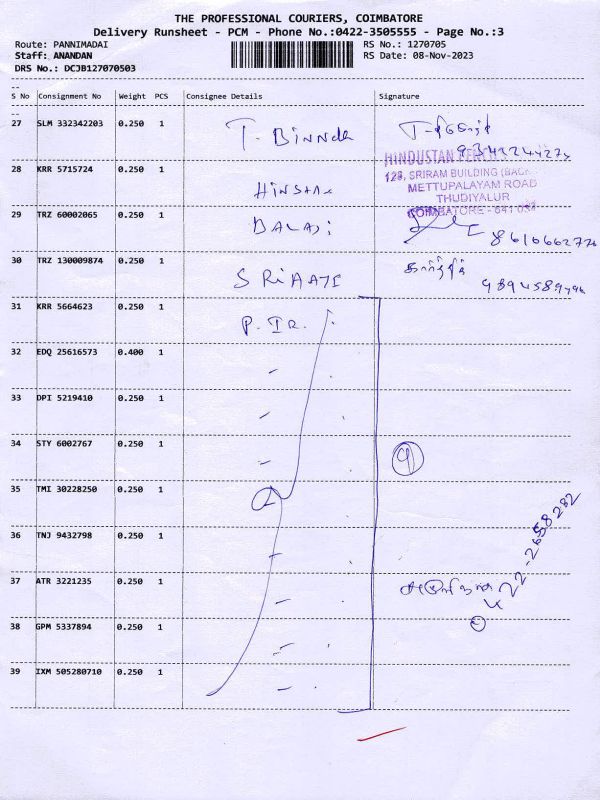 THE PROFESSIONAL COURIERS, COIMBATORE
Delivery Runsheet - PCM - Phone No.:0422-3505555 - Page No.:3
Route: PANNIMADAI
Staff: ANANDAN
DRS No.: DCJB127070503
RS No.: 1270705
RS Date: 08-Nov-2023
--
S No Consignment No Weight PCS Consignee Details Signature
--
27 SLM 332342203 0.250 1
28 KRR 5715724 0.250 1
HINDUSTAN
SRIRAM BUILDING (BACK
METTUPALAYAM ROAD
THUDIYALUR
COIMBATORE - 641 034
29 TRZ 60002065 0.250 1 BALAJi
30 TRZ 130009874 0.250 1 SRiAAJI
கார்த்திக்
31 KRR 5664623 0.250 1
32 EDQ 25616573 0.400 1
33 DPI 5219410 0.250 1
34 STY 6002767 0.250 1
9
35 TMI 30228250 0.250 1
36 TNJ 9432798 0.250 1
37 ATR 3221235 0.250 1
38 GPM 5337894 0.250 1
39 IXM 505280710 0.250 1